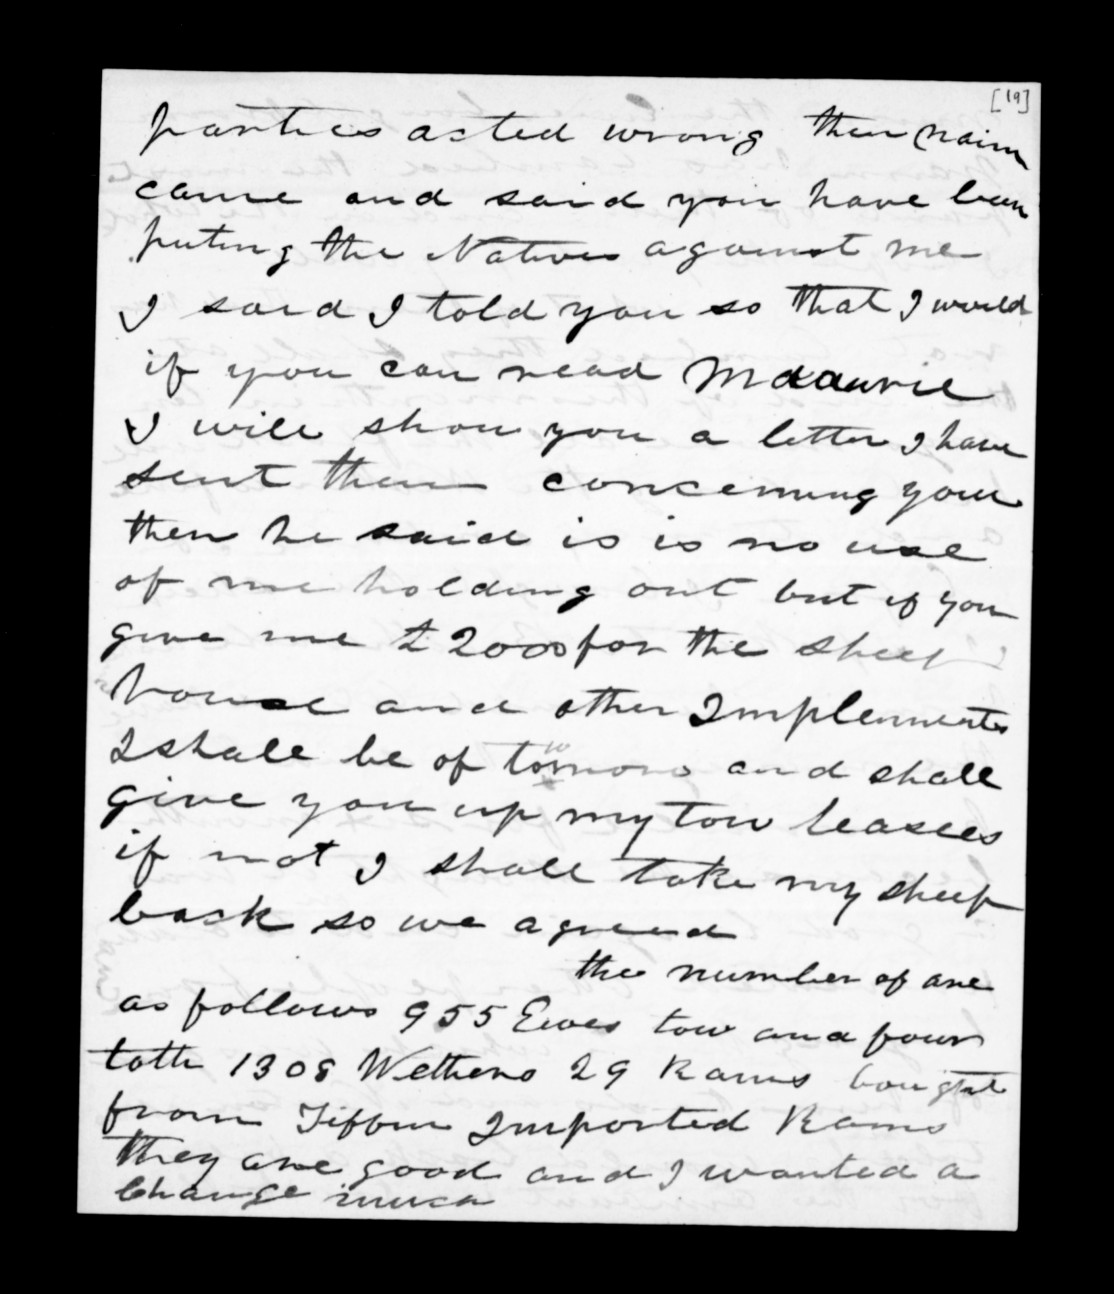 [19]
parties acted wrong then (naim
came and said you have been
puting the Natives against me
I said I told you so that I would
if you can read Maaurie
I will show you a letter I have
sent them concerning you
then he said is is no use
of me holding out but if you
give me £2000 for the sheep
house and other Implements
I shall be of tomorow and shall
give you up my tow leasees
if not I shall take my sheep
back so we agreed
the number of are
as follows 955 Ewes tow and four
toth 1308 Wethers 29 Rams bought
from Tiffen Imported Rams
they are good and I wanted a
change much